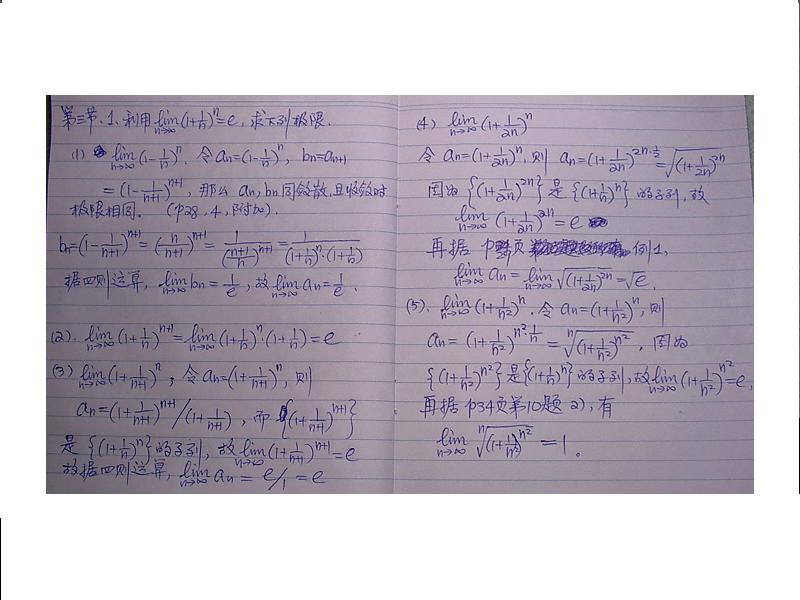 第三节、1、利用lim n→∞ (1+1/n)^n=e, 求下列极限.
(1) lim n→∞ (1-1/n)^n. 令 an=(1-1/n)^n, bn=an+1
=(1-1/(n+1))^(n+1), 那么 an, bn 同敛散, 且收敛时
极限相同. (p28, 4, 附加).
bn=(1-1/(n+1))^(n+1)=(n/(n+1))^(n+1)=1/((n+1)/n)^(n+1)=1/((1+1/n)^n·(1+1/n))
据四则运算, lim n→∞ bn=1/e, 故 lim n→∞ an=1/e.
(2). lim n→∞ (1+1/n)^(n+1)=lim n→∞ (1+1/n)^n·(1+1/n)=e
(3) lim n→∞ (1+1/(n+1))^n, 令 an=(1+1/(n+1))^n, 则
an=(1+1/(n+1))^(n+1)/(1+1/(n+1)), 而 {(1+1/(n+1))^(n+1)}
是 {(1+1/n)^n} 的子列, 故 lim n→∞ (1+1/(n+1))^(n+1)=e
故据四则运算, lim n→∞ an=e/1=e
(4) lim n→∞ (1+1/2n)^n
令 an=(1+1/2n)^n, 则 an=(1+1/2n)^(2n·1/2)=√((1+1/2n)^2n)
因为 {(1+1/2n)^2n} 是 {(1+1/n)^n} 的子列, 故
lim n→∞ (1+1/2n)^2n=e
再据 p 页 例1,
lim n→∞ an=lim n→∞ √((1+1/2n)^2n)=√e.
(5). lim n→∞ (1+1/n²)^n. 令 an=(1+1/n²)^n, 则
an=(1+1/n²)^(n²·1/n)=ⁿ√((1+1/n²)^n²), 因为
{(1+1/n²)^n²} 是 {(1+1/n)^n} 的子列, 故 lim n→∞ (1+1/n²)^n²=e,
再据 p34页第10题 2), 有
lim n→∞ ⁿ√((1+1/n²)^n²)=1.